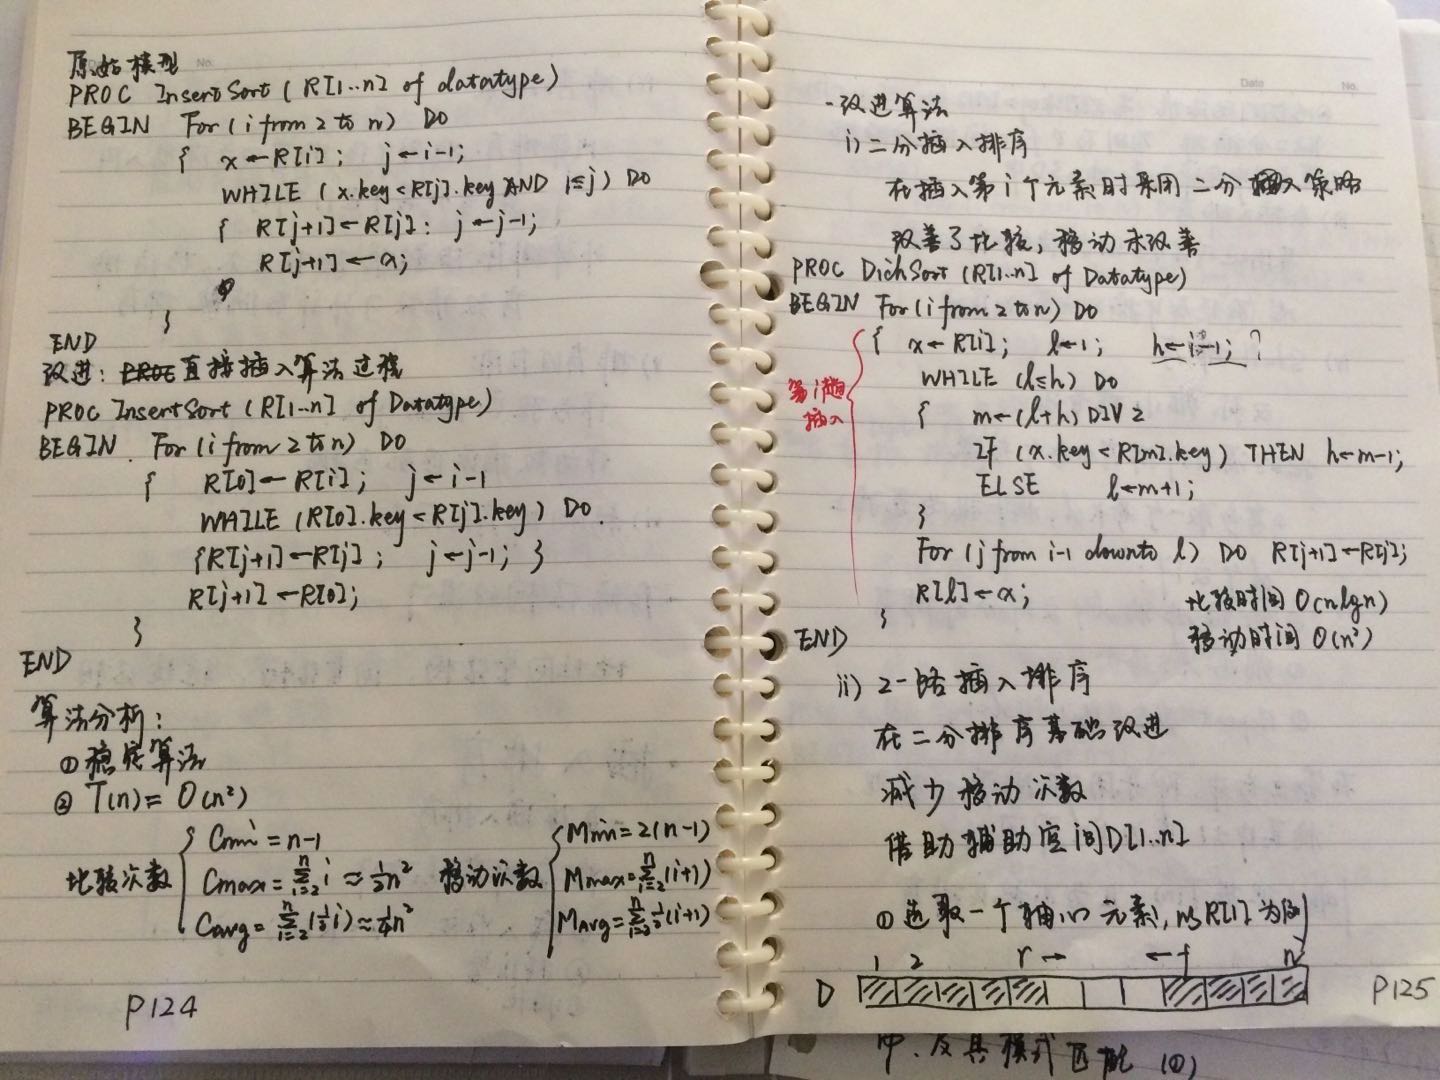 原始模型
PROC InsertSort ( R[1..n] of datatype)
BEGIN For (i from 2 to n) DO
{ x←R[i] ; j←i-1;
WHILE (x.key<R[j].key AND 1≤j) DO
{ R[j+1]←R[j]; j←j-1;
R[j+1]←x;
}
END
改进：直接插入算法过程
PROC InsertSort (R[1..n] of Datatype)
BEGIN. For (i from 2 to n) DO
{ R[0]←R[i] ; j←i-1
WHILE (R[0].key<R[j].key) DO.
{R[j+1]←R[j] ; j←j-1; }
R[j+1]←R[0];
}
END
算法分析：
① 稳定算法
② T(n)= O(n²)
比较次数 { Cmin = n-1
Cmax = n∑i=2 i ≈ ½n²
Cavg = n∑i=2 (½i) ≈ ¼n²
移动次数 { Mmin = 2(n-1)
Mmax = n∑i=2 (i+1)
Mavg = n∑i=2 ½(i+1)
P124
Date No.
-改进算法
i) 二分插入排序
在插入第i个元素时采用二分插入策略
改善了比较，移动未改善
PROC DichSort (R[1..n] of Datatype)
BEGIN For (i from 2 to n) Do
{ x←R[i]; l←1; h←i-1; ?
WHILE (l≤h) DO
{ m←(l+h) DIV 2
IF (x.key<R[m].key) THEN h←m-1;
ELSE l←m+1;
}
For (j from i-1 downto l) DO R[j+1]←R[j];
R[l]←x;
}
END
第i趟
插入
比较时间 O(nlgn)
移动时间 O(n²)
ii) 2-路插入排序
在二分排序基础改进
减少移动次数
借助辅助空间D[1..n]
① 选取一个轴心元素，以R[1]为例
1 2 r→ ←f n
D
P125
中，及其模式匹配 (①)